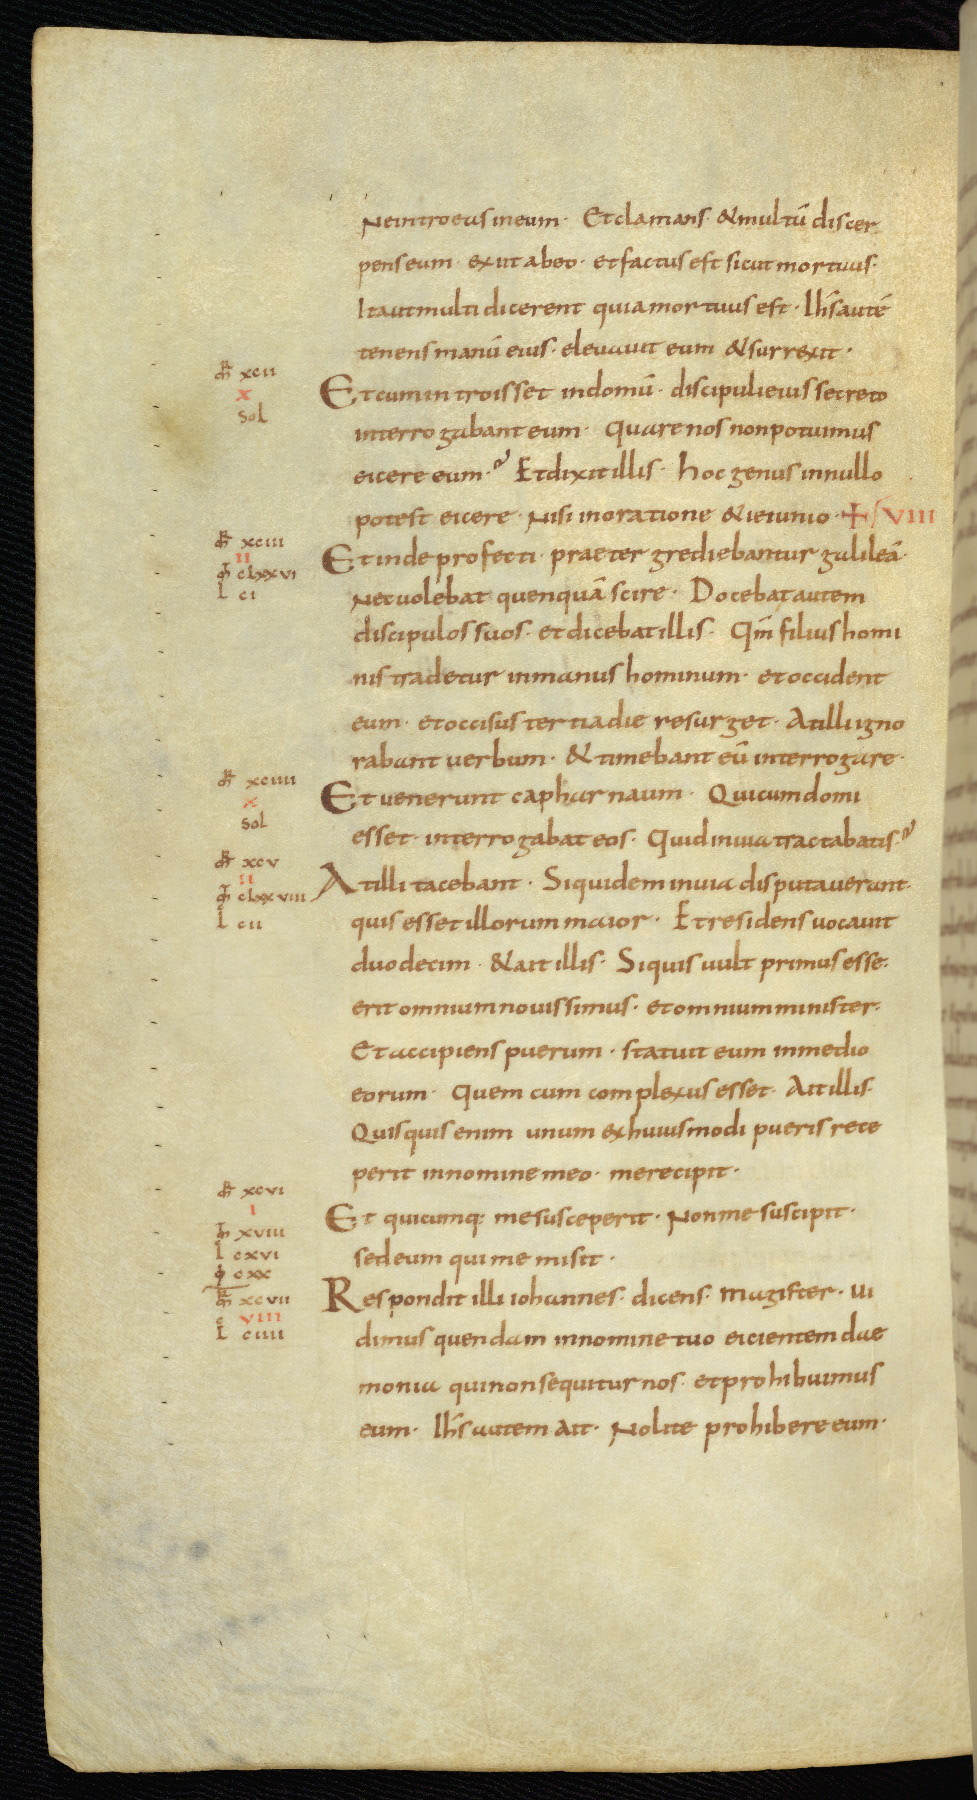 Neintroeas ineum · Et clamans · &multū discer
pens eum · exiit abeo · et factus est sicut mortuus ·
Ita ut multi dicerent quia mortuus est · Ihs̄ autē
tenens manū eius · eleuauit eum &surrexit ·
mr̄ xcii
x
sol
Et cum introisset indomū · discipuli eius secreto
interrogabant eum · Quare nos non potuimus
eicere eum · Et dixit illis · hoc genus innullo
potest eicere · Nisi inoratione &ieiunio · + VIII
mr̄ xciii
II
clxxvi
l ci
Et inde profecti · praetergrediebantur galileā ·
Nec uolebat quenquā scire · Docebat autem
discipulos suos · et dicebat illis · Qm̄ filius homi
nis tradetur inmanus hominum · et occident
eum · et occisus tertia die resurget · At illi igno
rabant uerbum · &timebant eū interrogare ·
mr̄ xciiii
x
sol
Et uenerunt capharnaum · Qui cum domi
esset · interrogabat eos · Quid inuia tractabatis
mr̄ xcv
II
clxxviii
l cii
At illi tacebant · Siquidem inuia disputauerant ·
quis esset illorum maior · Et residens uocauit
duodecim · &ait illis · Siquis uult primus esse ·
erit omnium nouissimus · et omnium minister ·
Et accipiens puerum · statuit eum inmedio
eorum · Quem cum complexus esset · Ait illis ·
Quisquis enim unum exhuiusmodi pueris rece
perit innomine meo · me recipit ·
mr̄ xcvi
I
xviii
l cxvi
cxx
Et quicumq; me susceperit · Non me suscipit ·
sed eum qui me misit ·
mr̄ xcvii
VIII
l ciiii
Respondit illi iohannes · dicens · magister · ui
dimus quendam innomine tuo eicientem dae
monia qui non sequitur nos · et prohibuimus
eum · Ihs̄ autem ait · Nolite prohibere eum ·